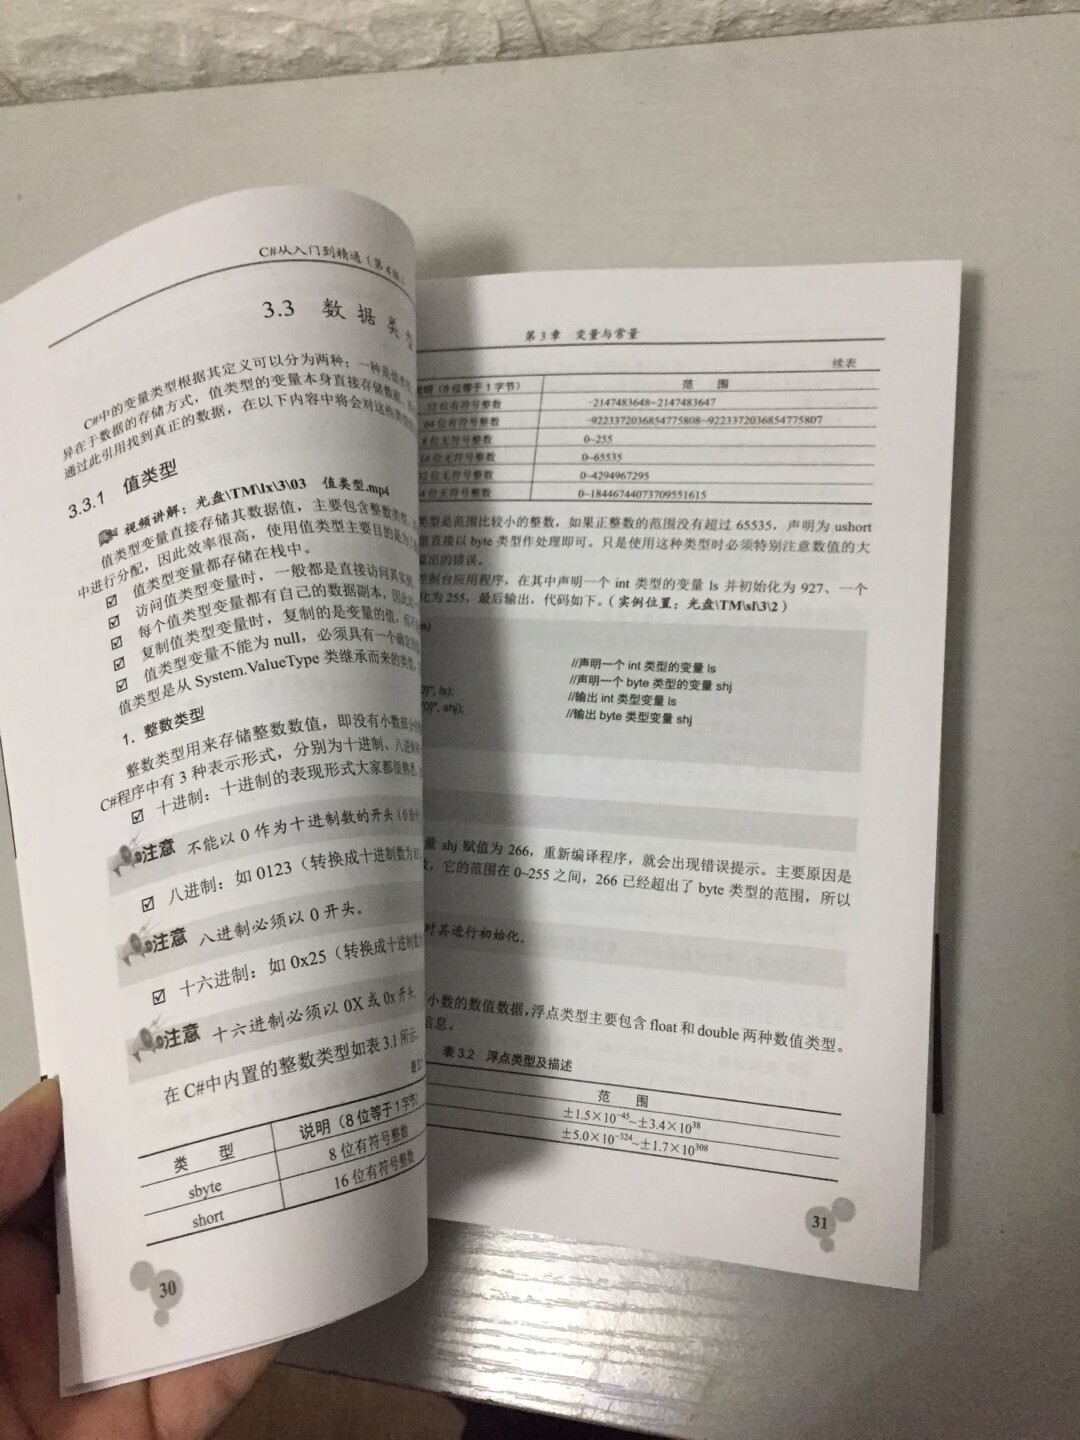 C#从入门到精通（第4版）
3.3 数据类型
C#中的变量类型根据其定义可以分为两种：一种是值类型
异在于数据的存储方式，值类型的变量本身直接存储数据
通过此引用找到真正的数据，在以下内容中将会对这些类型
3.3.1 值类型
视频讲解：光盘\TM\lx\3\03 值类型.mp4
值类型变量直接存储其数据值，主要包含整数类型
中进行分配，因此效率很高，使用值类型主要目的是为了
☑ 值类型变量都存储在栈中。
☑ 访问值类型变量时，一般都是直接访问其实例。
☑ 每个值类型变量都有自己的数据副本，因此对
☑ 复制值类型变量时，复制的是变量的值，而不
☑ 值类型变量不能为null，必须具有一个确定的
值类型是从System.ValueType类继承而来的类型，
1．整数类型
整数类型用来存储整数数值，即没有小数部分的
C#程序中有3种表示形式，分别为十进制、八进制
☑ 十进制：十进制的表现形式大家都很熟悉
注意 不能以0作为十进制数的开头（0除
☑ 八进制：如0123（转换成十进制数为
注意 八进制必须以0开头。
☑ 十六进制：如0x25（转换成十进制数
注意 十六进制必须以0X或0x开头。
在C#中内置的整数类型如表3.1所示。
类 型 说明（8位等于1字节）
sbyte 8位有符号整数
short 16位有符号整数
30
第3章 变量与常量
续表
说明（8位等于1字节） 范 围
32位有符号整数 -2147483648~2147483647
64位有符号整数 -9223372036854775808~9223372036854775807
8位无符号整数 0~255
16位无符号整数 0~65535
32位无符号整数 0~4294967295
64位无符号整数 0~18446744073709551615
类型是范围比较小的整数，如果正整数的范围没有超过65535，声明为ushort
值直接以byte类型作处理即可。只是使用这种类型时必须特别注意数值的大
溢出的错误。
控制台应用程序，在其中声明一个int类型的变量ls并初始化为927、一个
化为255，最后输出，代码如下。（实例位置：光盘\TM\sl\3\2）
//声明一个int类型的变量ls
//声明一个byte类型的变量shj
0}", ls); //输出int类型变量ls
{0}", shj); //输出byte类型变量shj
量shj赋值为266，重新编译程序，就会出现错误提示。主要原因是
，它的范围在0~255之间，266已经超出了byte类型的范围，所以
对其进行初始化。
小数的数值数据，浮点类型主要包含float和double两种数值类型。
信息。
表3.2 浮点类型及描述
范 围
±1.5×10⁻⁴⁵~±3.4×10³⁸
±5.0×10⁻³²⁴~±1.7×10³⁰⁸
31